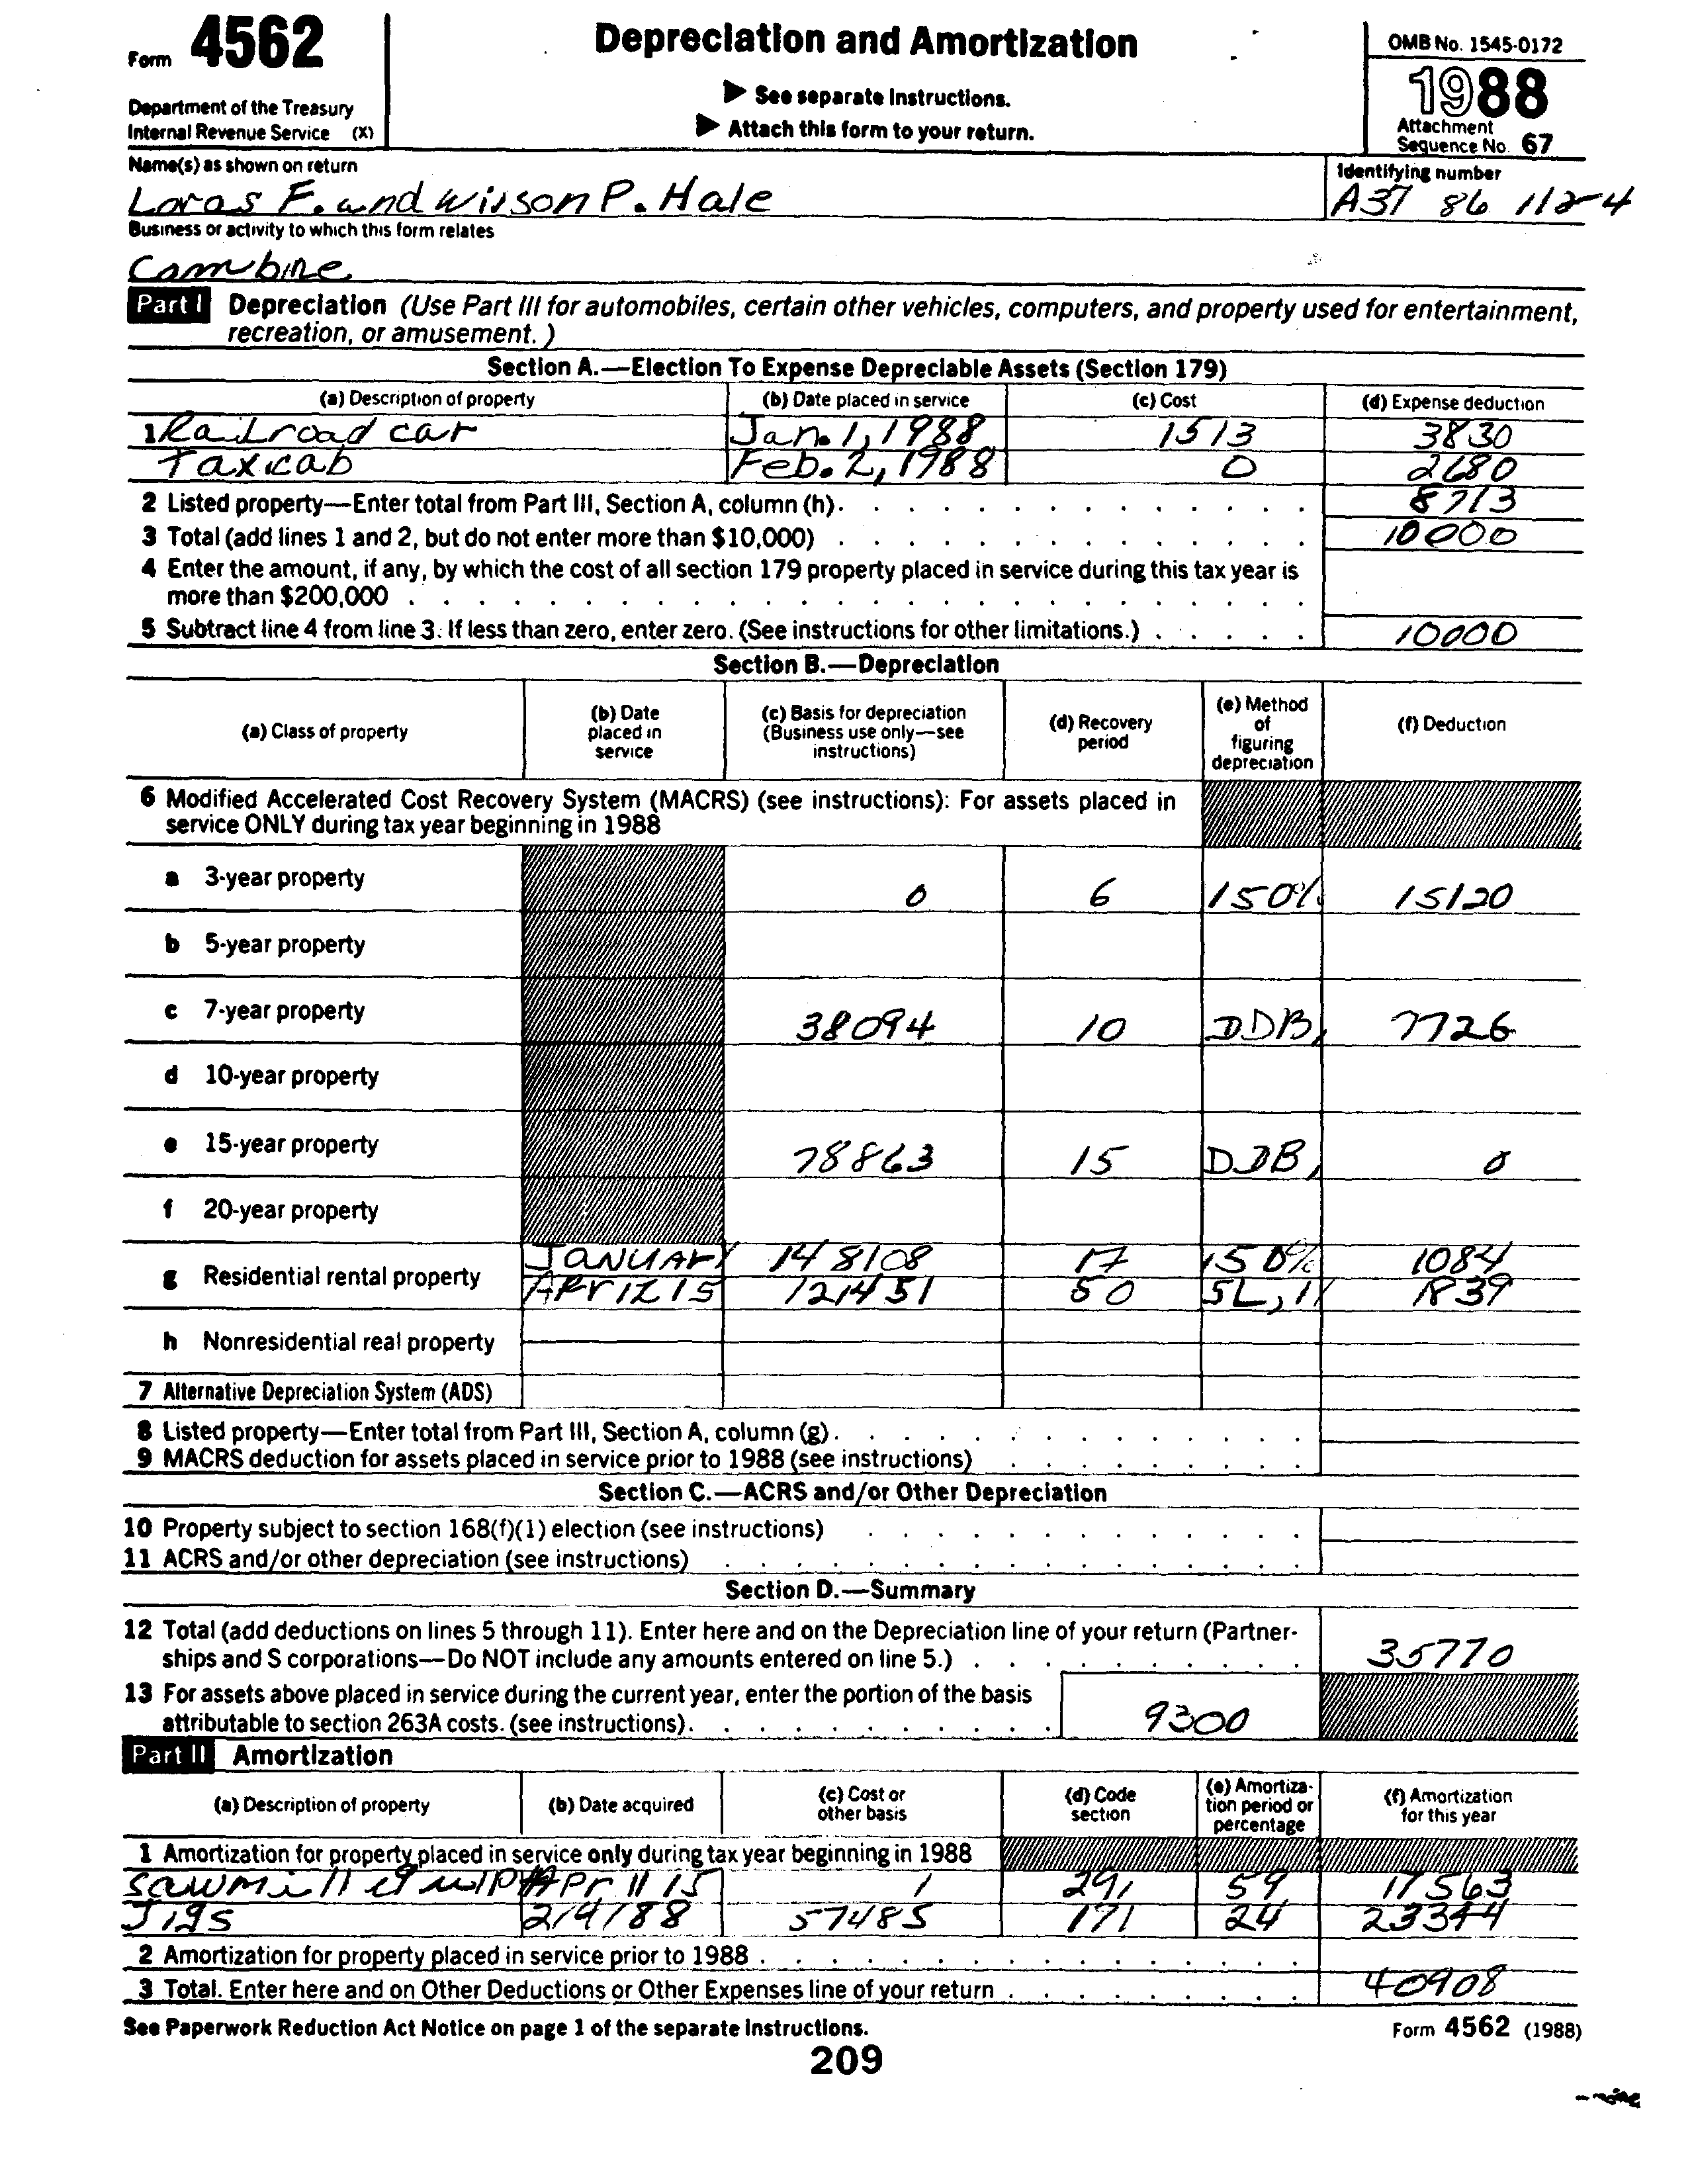 Form 4562
Depreciation and Amortization
OMB No. 1545-0172
1988
Department of the Treasury
Internal Revenue Service (X)
▶ See separate Instructions.
▶ Attach this form to your return.
Attachment
Sequence No. 67
Name(s) as shown on return
Identifying number
Loras F. and Wilson P. Hale
A37 86 1124
Business or activity to which this form relates
Combine
Part I Depreciation (Use Part III for automobiles, certain other vehicles, computers, and property used for entertainment,
recreation, or amusement.)
Section A.—Election To Expense Depreciable Assets (Section 179)
(a) Description of property (b) Date placed in service (c) Cost (d) Expense deduction
1 Railroad car Jan. 1, 1988 1513 3830
Taxicab Feb. 2, 1988 0 2680
2 Listed property—Enter total from Part III, Section A, column (h). 8713
3 Total (add lines 1 and 2, but do not enter more than $10,000) 10000
4 Enter the amount, if any, by which the cost of all section 179 property placed in service during this tax year is
more than $200,000
5 Subtract line 4 from line 3. If less than zero, enter zero. (See instructions for other limitations.) 10000
Section B.—Depreciation
(a) Class of property (b) Date placed in service (c) Basis for depreciation (Business use only—see instructions) (d) Recovery period (e) Method of figuring depreciation (f) Deduction
6 Modified Accelerated Cost Recovery System (MACRS) (see instructions): For assets placed in
service ONLY during tax year beginning in 1988
a 3-year property 0 6 150% 15120
b 5-year property
c 7-year property 38094 10 DDB, 7726
d 10-year property
e 15-year property 78863 15 DDB, 0
f 20-year property
g Residential rental property
January 148108 17 150% 1084
April 15 121451 50 SL, 1839
h Nonresidential real property
7 Alternative Depreciation System (ADS)
8 Listed property—Enter total from Part III, Section A, column (g).
9 MACRS deduction for assets placed in service prior to 1988 (see instructions)
Section C.—ACRS and/or Other Depreciation
10 Property subject to section 168(f)(1) election (see instructions)
11 ACRS and/or other depreciation (see instructions)
Section D.—Summary
12 Total (add deductions on lines 5 through 11). Enter here and on the Depreciation line of your return (Partner-
ships and S corporations—Do NOT include any amounts entered on line 5.) 35770
13 For assets above placed in service during the current year, enter the portion of the basis
attributable to section 263A costs. (see instructions). 9300
Part II Amortization
(a) Description of property (b) Date acquired (c) Cost or other basis (d) Code section (e) Amortiza- tion period or percentage (f) Amortization for this year
1 Amortization for property placed in service only during tax year beginning in 1988
Sawmill April 15 1 291 59 17563
Jigs 2/9/88 57485 171 24 23344
2 Amortization for property placed in service prior to 1988
3 Total. Enter here and on Other Deductions or Other Expenses line of your return 40908
See Paperwork Reduction Act Notice on page 1 of the separate Instructions.
Form 4562 (1988)
209